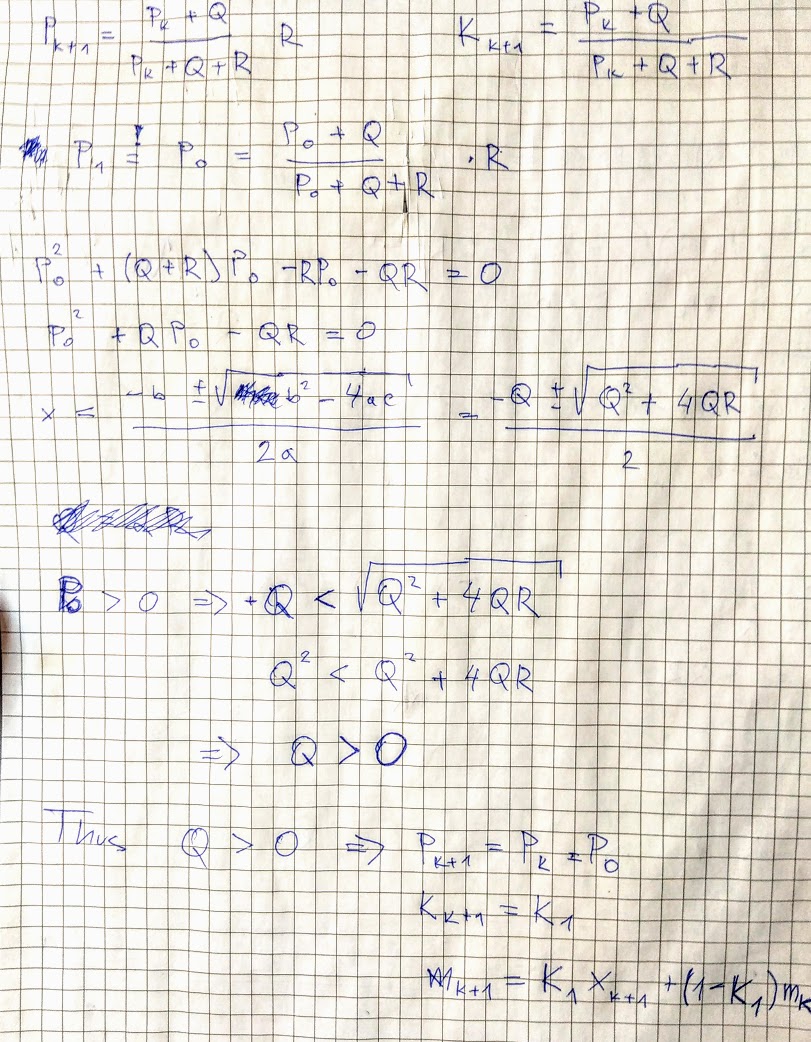 P_{k+1} = \frac{P_k + Q}{P_k + Q + R} R    K_{k+1} = \frac{P_k + Q}{P_k + Q + R}
P_1 \overset{!}{=} P_0 = \frac{P_0 + Q}{P_0 + Q + R} · R
P_0^2 + (Q+R) P_0 - RP_0 - QR = 0
P_0^2 + Q P_0 - QR = 0
x = \frac{-b ± \sqrt{b^2 - 4ac}}{2a} = \frac{-Q ± \sqrt{Q^2 + 4QR}}{2}
P_0 > 0 => +Q < \sqrt{Q^2 + 4QR}
Q^2 < Q^2 + 4QR
=> Q > 0
Thus Q > 0 => P_{k+1} = P_k = P_0
K_{k+1} = K_1
m_{k+1} = K_1 x_{k+1} + (1-K_1) m_k